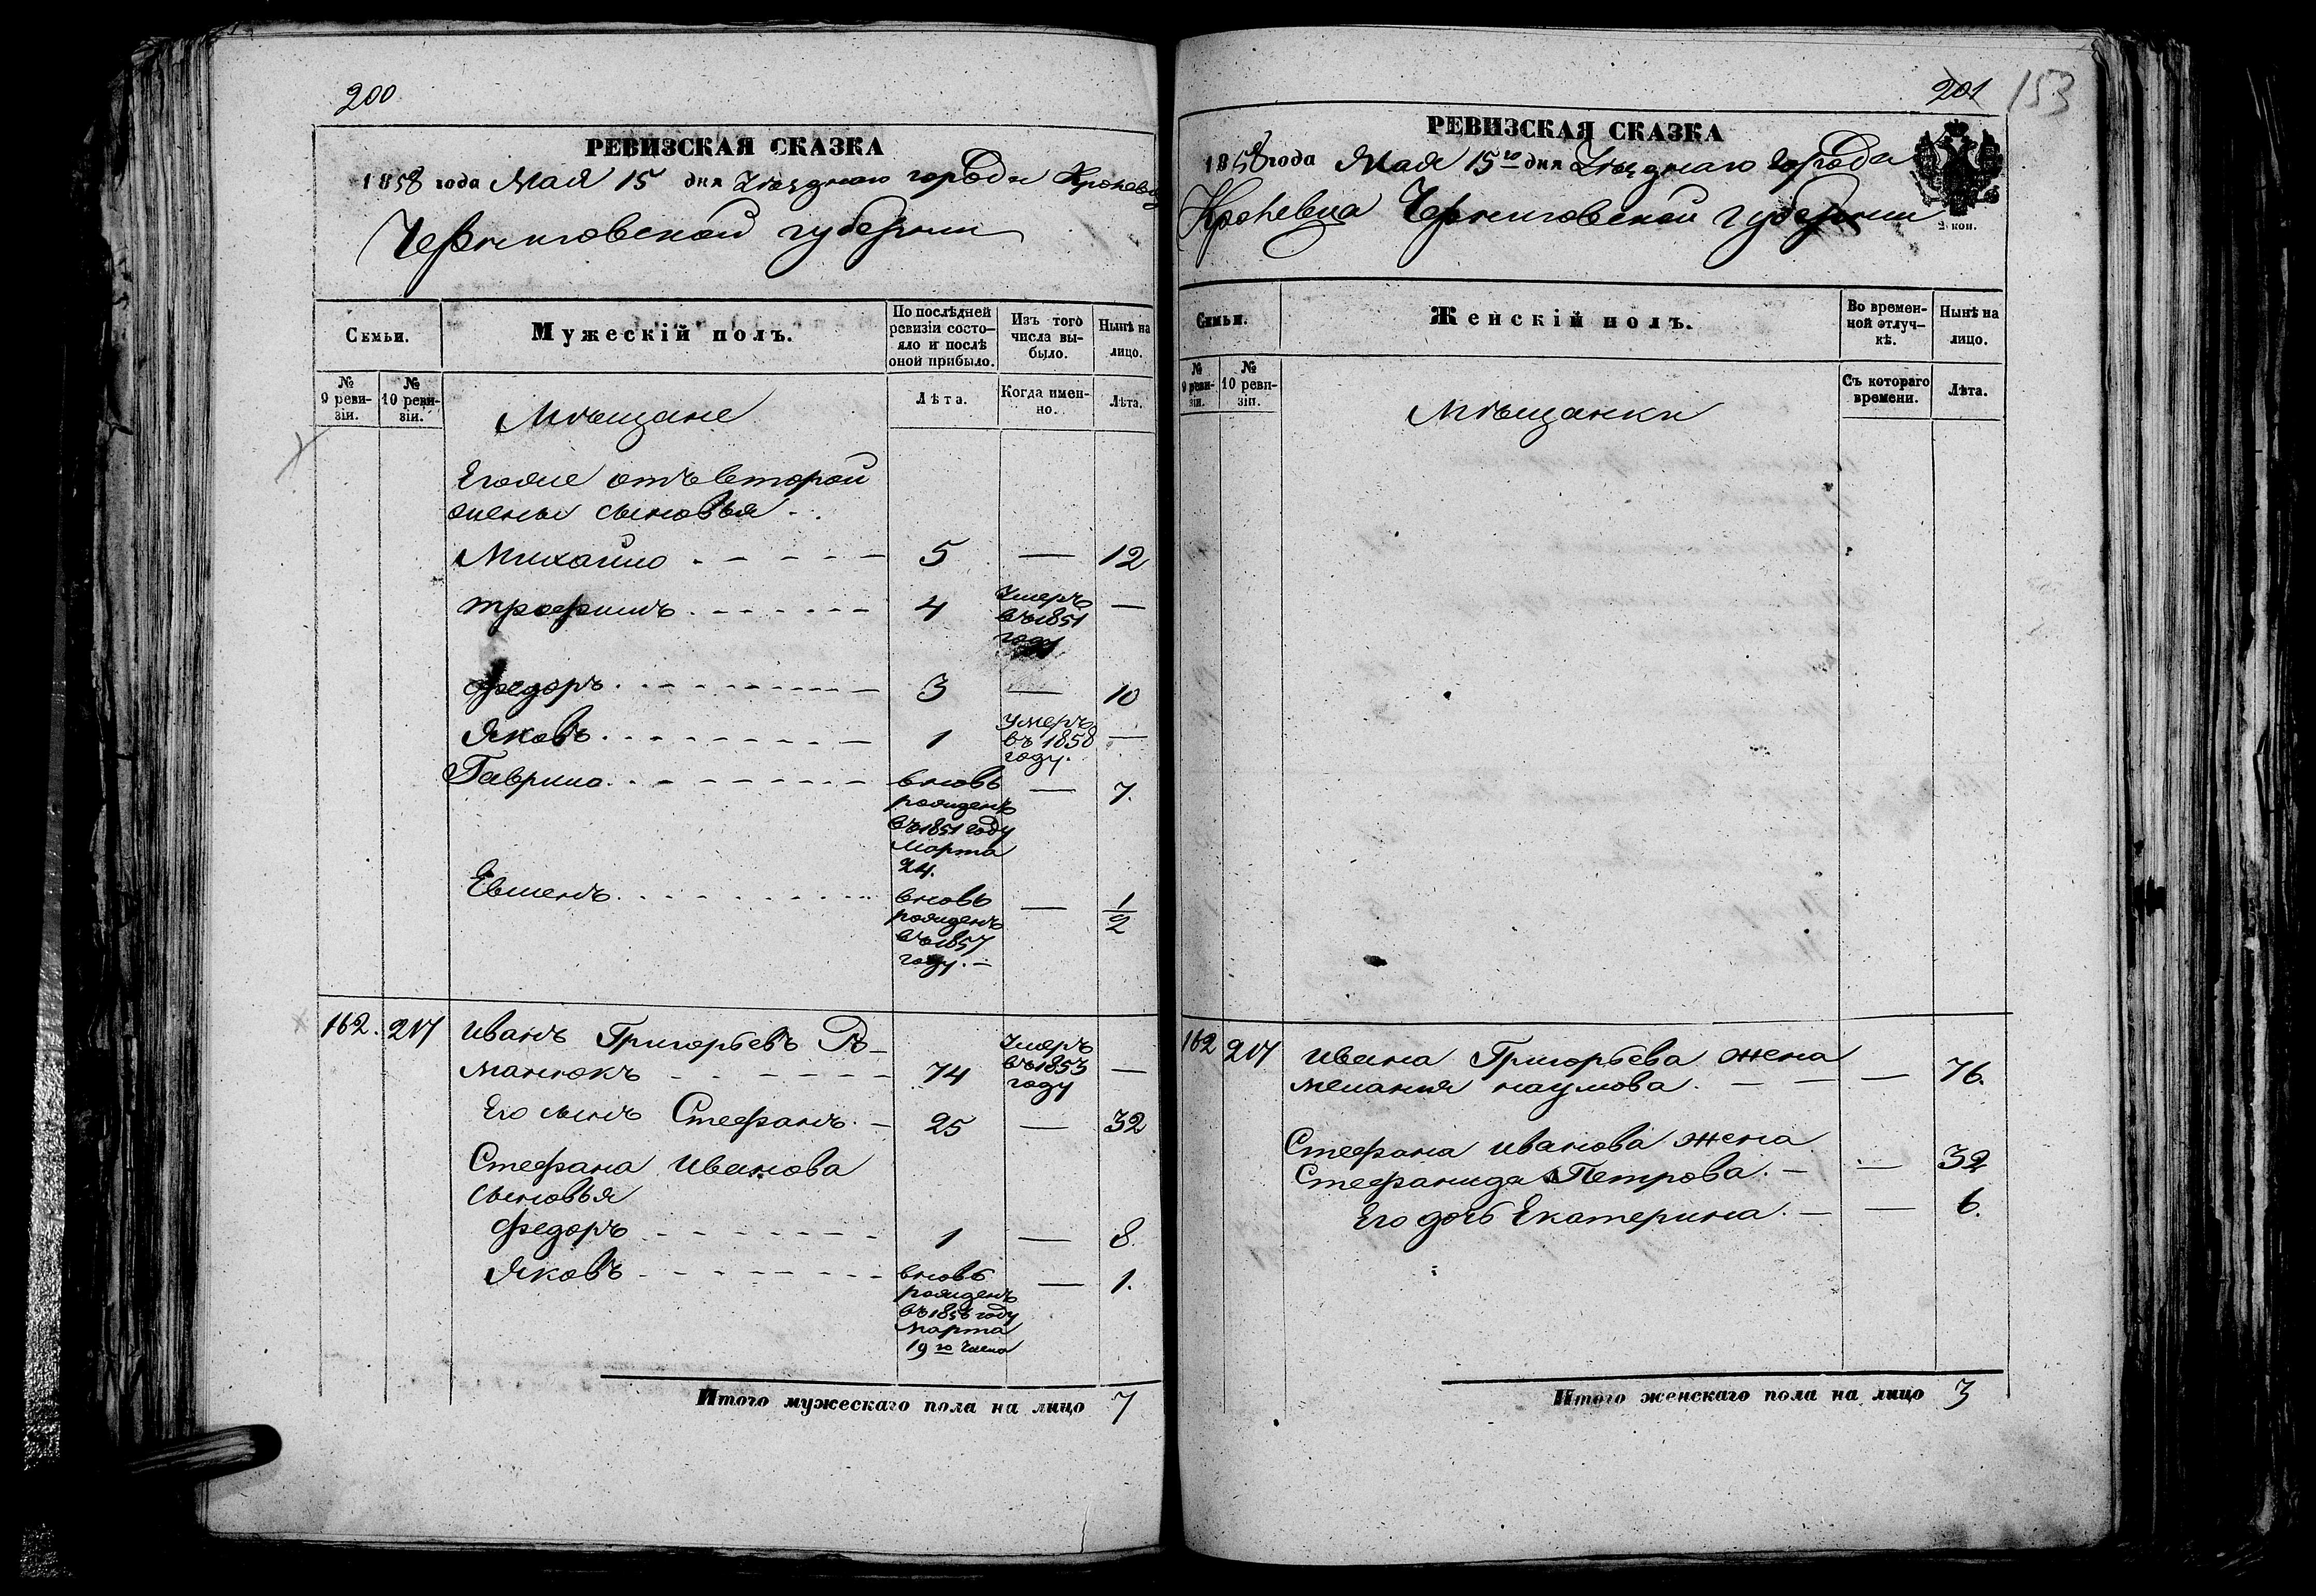 200
РЕВИЗСКАЯ СКАЗКА
1858 года Мая 15 дня Уѣзднаго города Кролевца
Черниговской губернии
Семьи.
Мужескій полъ.
По послѣдней
ревизіи состо-
яло и послѣ
оной прибыло.
Изъ того
числа вы-
было.
Нынѣ на
лицо.
№
9 реви-
зіи.
№
10 реви-
зіи.
Мѣщане
Лѣта.
Когда имен-
но.
Лѣта.
Егоже отъ второй
жены сыновья
Михайло 5 — 12
Трофимъ 4 Умеръ въ 1851 году —
Федоръ 3 — 10
Яковъ 1 Умеръ въ 1858 году. —
Гаврило вновь рожденъ въ 1851 году Марта 24. — 7.
вновь рожденъ въ 1857 году. — 1/2
162. 217 Иванъ Григорьевъ Ро-
манюкъ 74 Умеръ въ 1855 году —
Его сынъ Стефанъ 25 — 32
Стефана Иванова
сыновья
Федоръ 1 — 8.
Яковъ вновь рожденъ въ 1856 году Марта 19го числа — 1.
Итого мужескаго пола на лицо 7
201 153
РЕВИЗСКАЯ СКАЗКА
1858 года Мая 15го дня Уѣзднаго города
Кролевца Черниговской губернии
2 коп.
Семьи.
Женскій полъ.
Во времен-
ной отлуч-
кѣ.
Нынѣ на
лицо.
№
9 реви-
зіи.
№
10 реви-
зіи.
Мѣщанки
Съ котораго
времени.
Лѣта.
162 217 Ивана Григорьева жена
Мелания Наумова. — 76.
Стефана Иванова жена
Стефанида Петрова. — 32
Его дочь Екатерина. — 6.
Итого женскаго пола на лицо 3